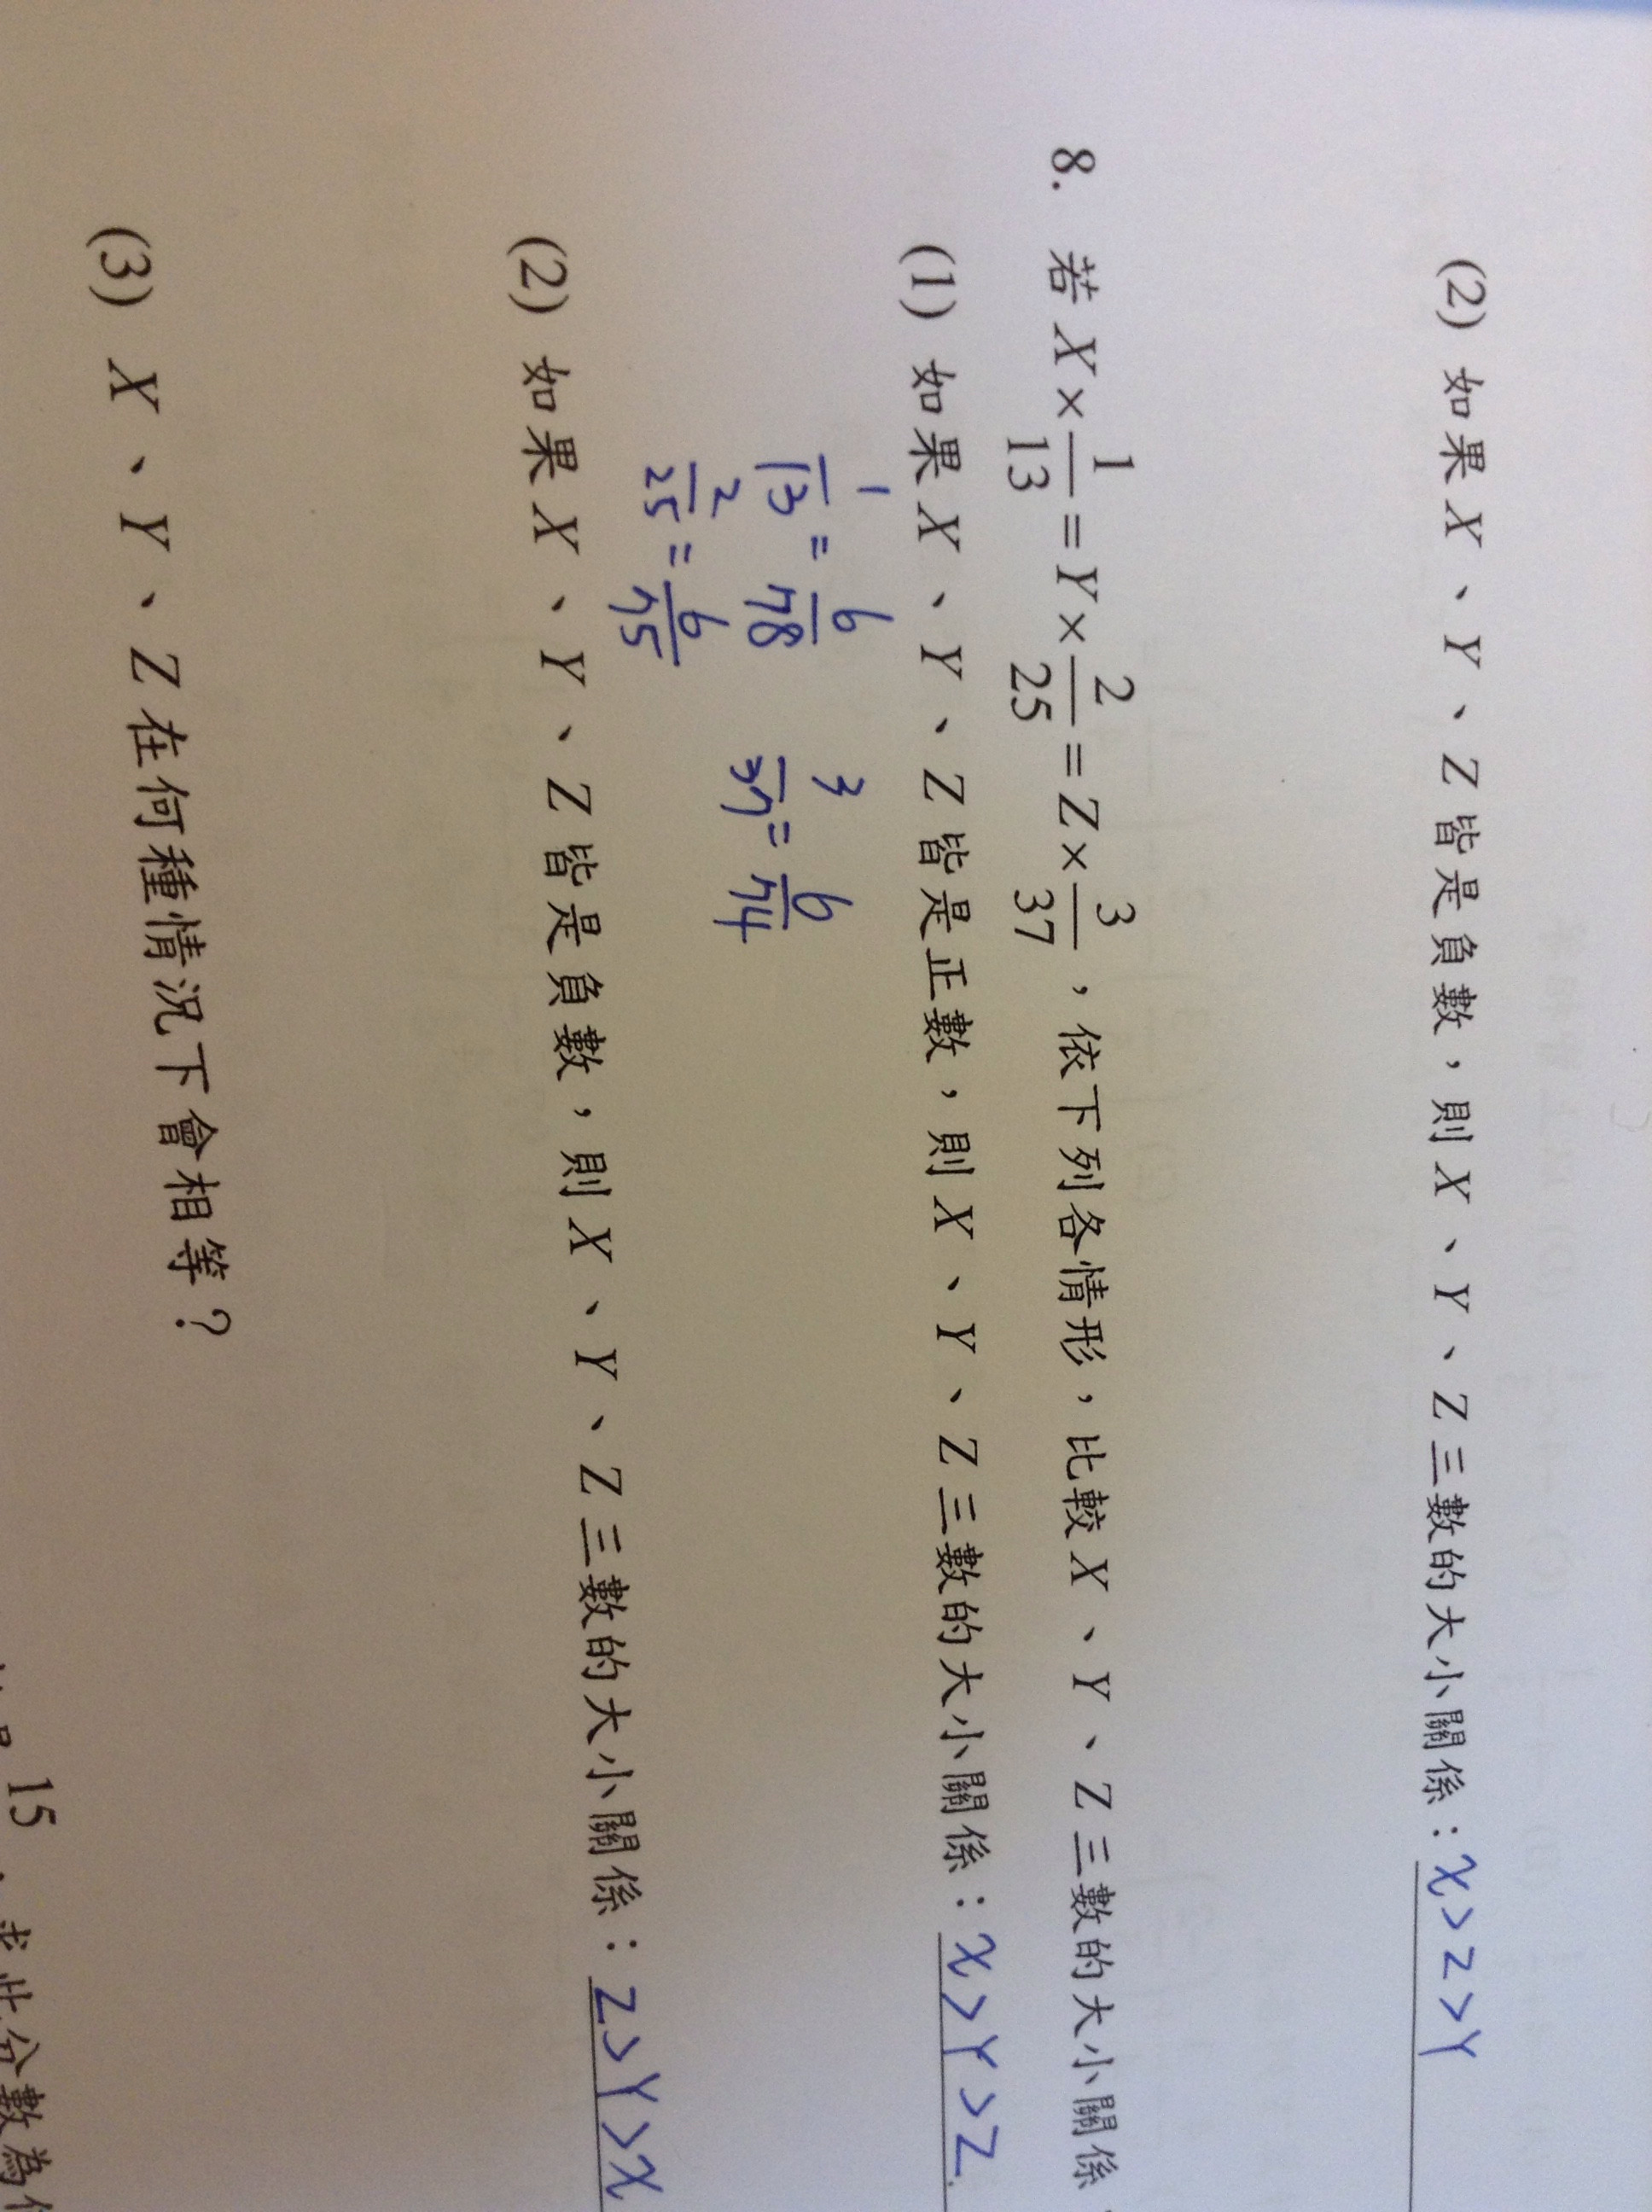 (2) 如果 X、Y、Z 皆是負數，則 X、Y、Z 三數的大小關係：x>z>Y
8. 若 X×1/13=Y×2/25=Z×3/37，依下列各情形，比較 X、Y、Z 三數的大小關係
(1) 如果 X、Y、Z 皆是正數，則 X、Y、Z 三數的大小關係：x>Y>Z
1/13=6/78 3/37=6/74
2/25=6/75
(2) 如果 X、Y、Z 皆是負數，則 X、Y、Z 三數的大小關係：z>Y>x
(3) X、Y、Z 在何種情況下會相等？
15 求此分數為